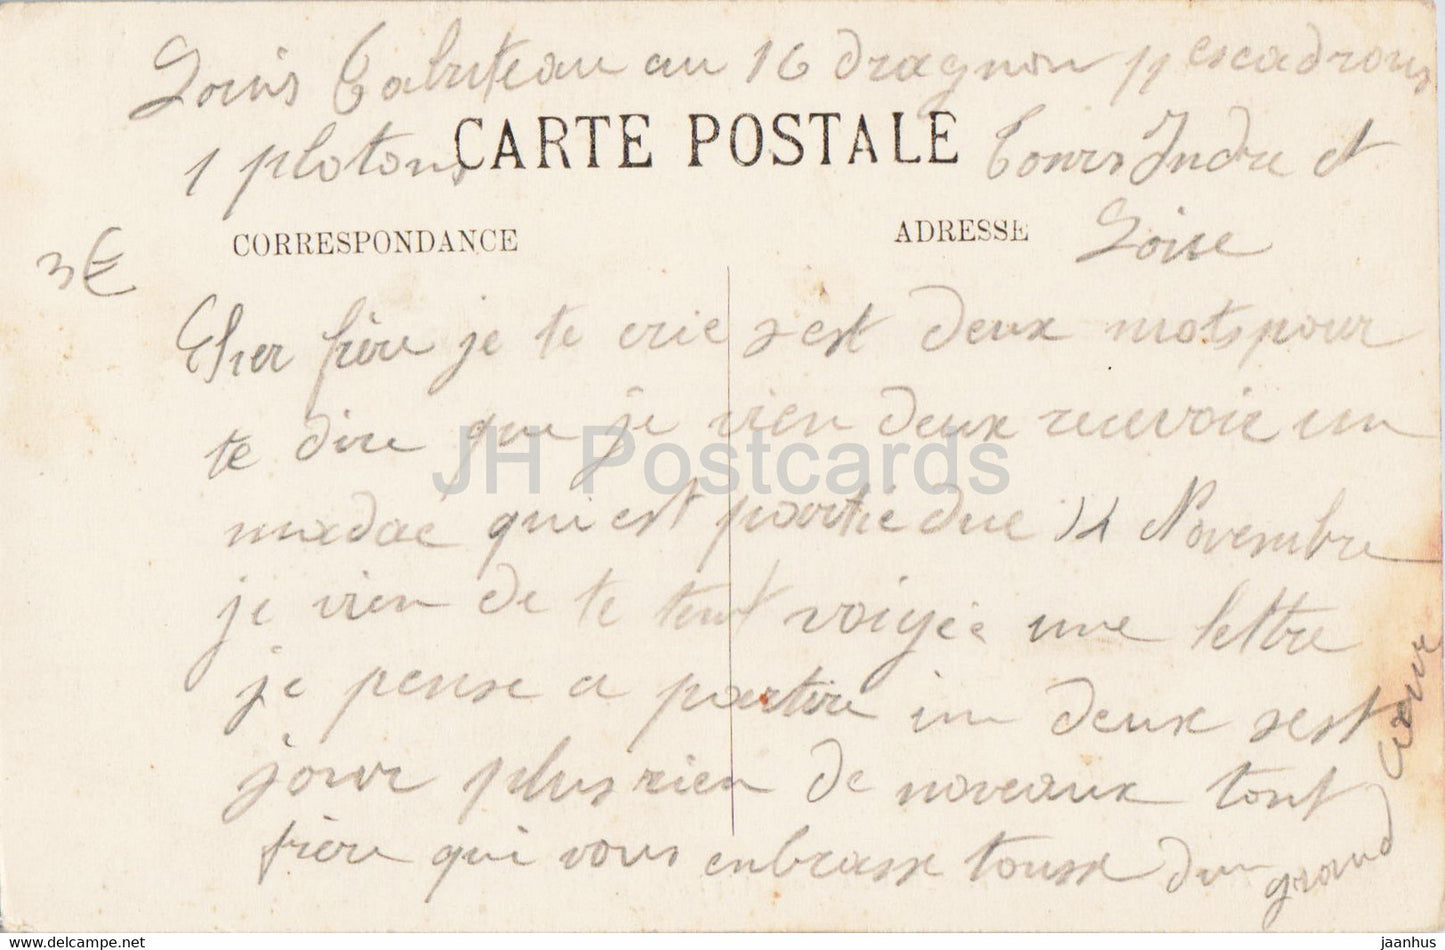 Louis Cabuteau au 16 dragnon 11 escadrons
1 plotons
CARTE POSTALE
Tours Indre et
Loire
3€
CORRESPONDANCE
ADRESSE
Cher frère je te crie sest deux mots pour
te dire que je vien deux recevoir un
madae qui est partie due 14 Novembre
je vien de te tent voiyée une lettre
je pense a partire un deux sest
jour plus rien de noveaux tont
frère qui vous enbrasse tousse dun grand
Cœur
JH Postcards
www.hippostcard.com
jaanhus